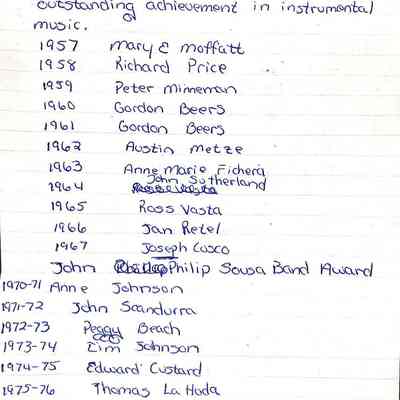 outstanding achievement in instrumental
music.
1957 Mary E Moffatt
1958 Richard Price
1959 Peter Mimeman
1960 Gordon Beers
1961 Gordon Beers
1962 Austin Metze
1963 Anne Marie Fichera
1964 John Sutherland
1965 Ross Vasta
1966 Jan Retel
1967 Joseph Cusco
John Philip Sousa Band Award
1970-71 Anne Johnson
1971-72 John Scandurra
1972-73 Peggy Beach
1973-74 Tim Johnson
1974-75 Edward Custard
1975-76 Thomas La Hoda